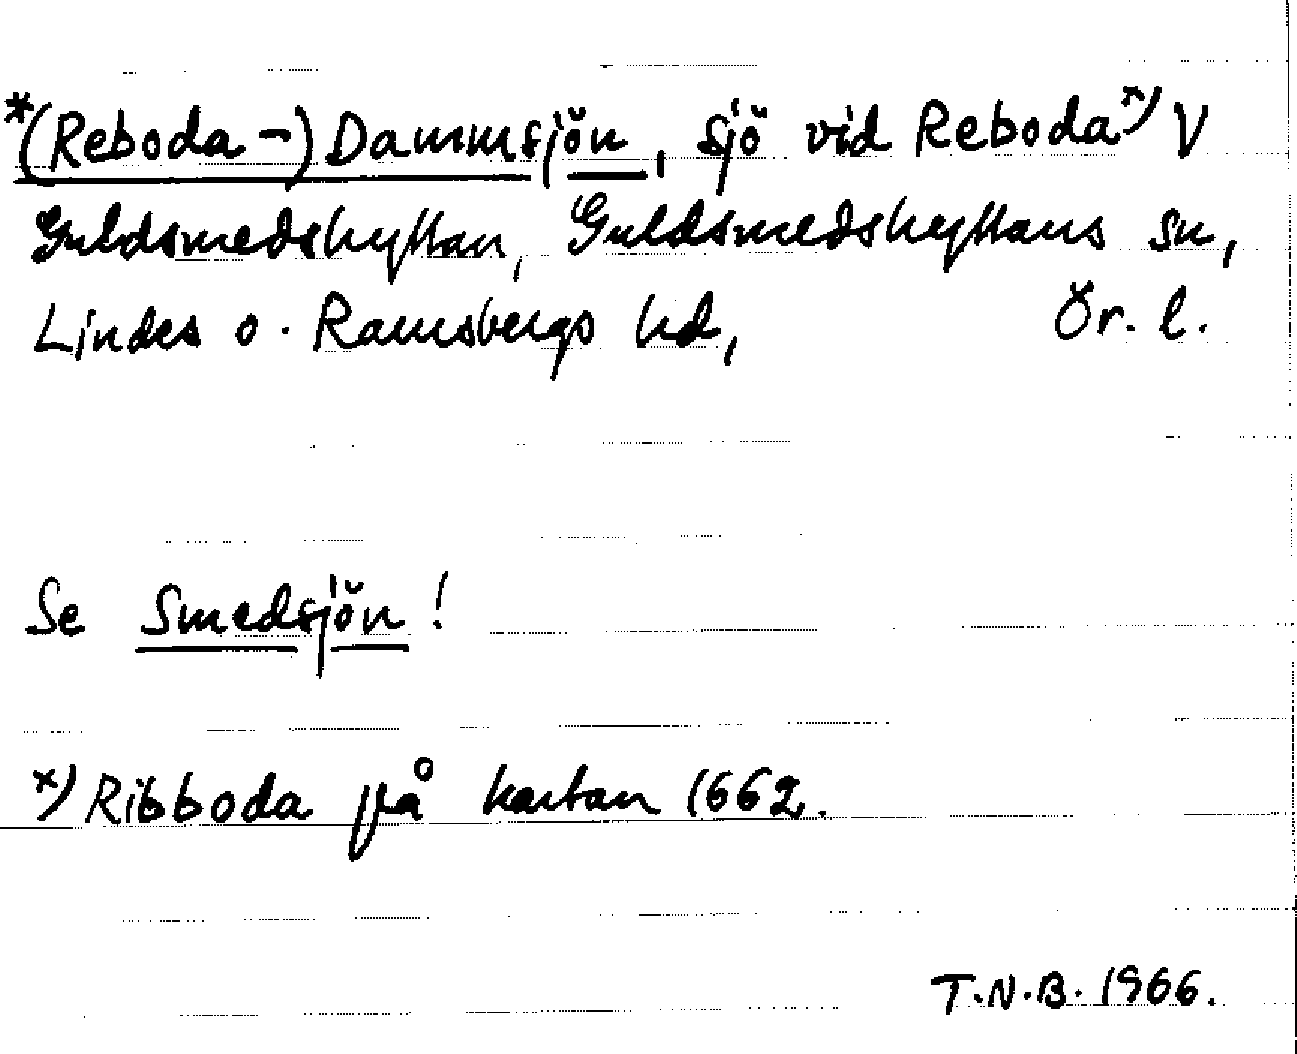 *(Reboda-)Dammsjön, sjö vid Reboda x) V
Guldsmedshyttan, Guldsmedshyttans sn,
Lindes o. Ramsbergs hd, Ör. l.
Se Smedsjön!
x) Ribboda på kartan 1662.
T.N.B. 1966.